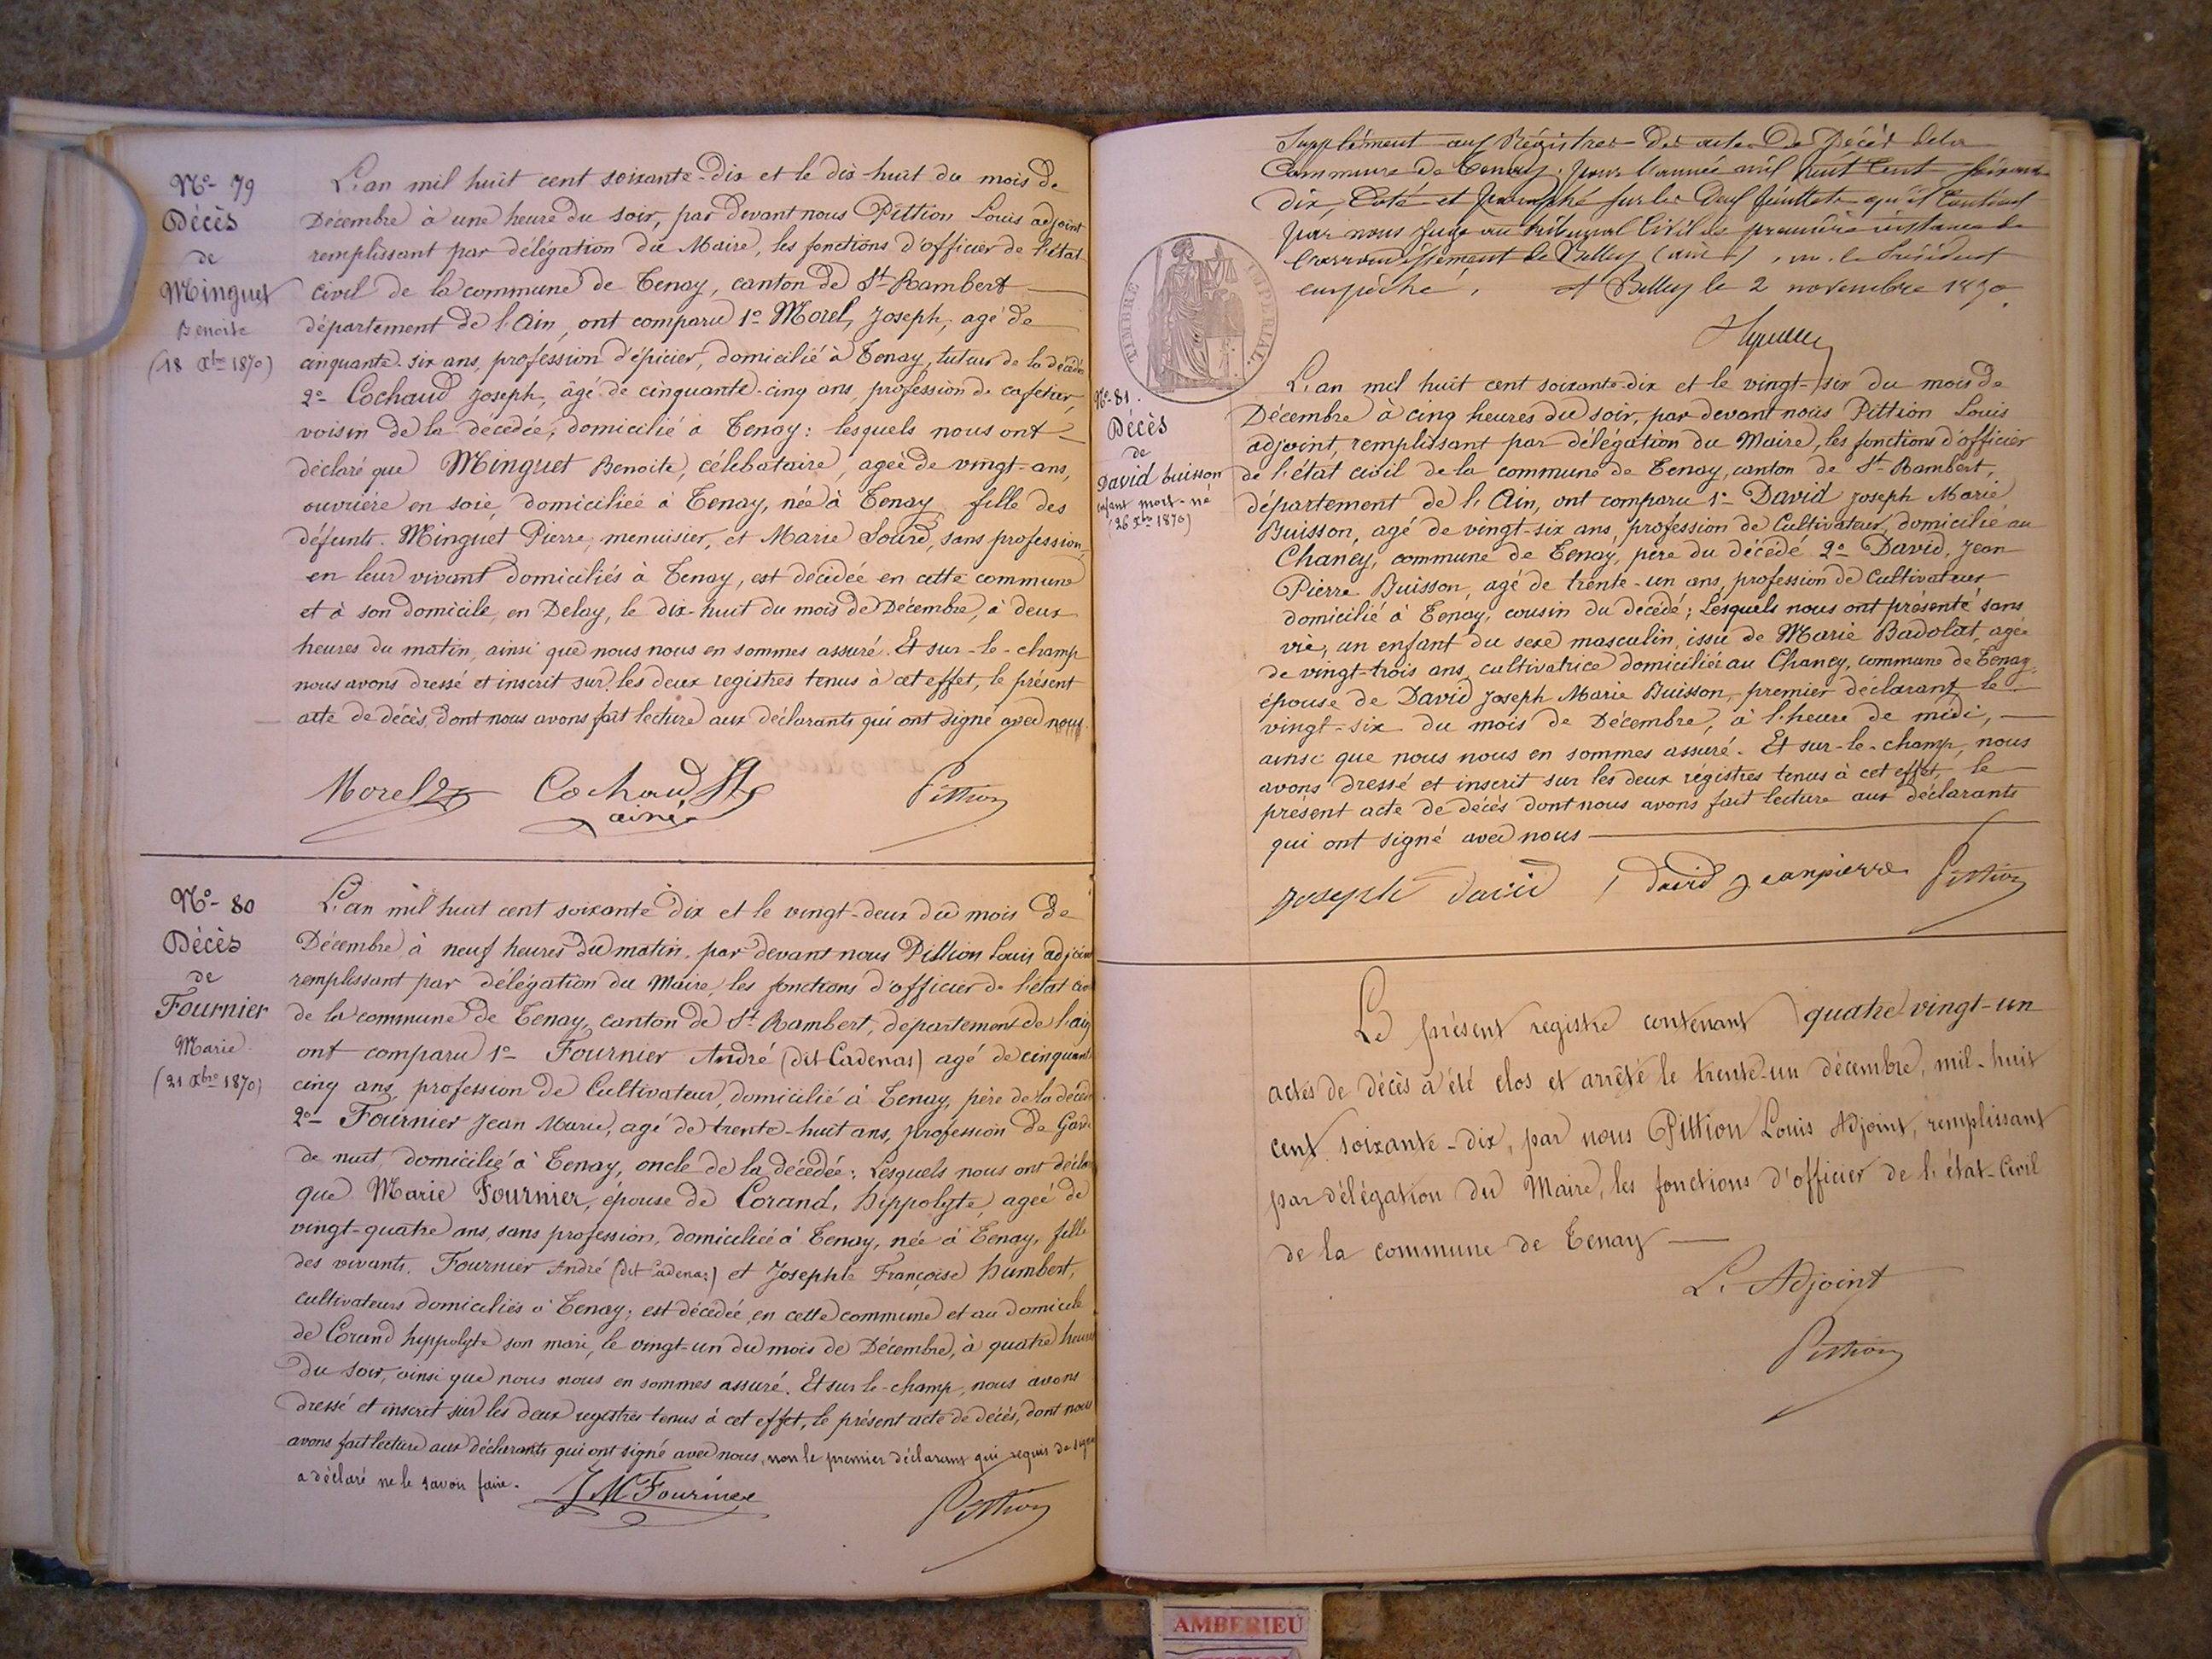 N°- 79
Décès
de
Minguet
Benoite
(18 Xbre 1870)
L'an mil huit cent soixante-dix et le dix-huit du mois de
Décembre à une heure du soir, par devant nous Pittion Louis adjoint
remplissant par délégation du Maire, les fonctions d'officier de l'état
civil de la commune de Tenay, canton de St Rambert
département de l'Ain, ont comparu 1° Morel, Joseph, agé de
cinquante-six ans, profession d'épicier, domicilié à Tenay, tuteur de la décédé
2° Cochaud Joseph, âgé de cinquante-cinq ans, profession de cafetier,
voisin de la décédée, domicilié à Tenay: lesquels nous ont
déclaré que Minguet Benoite, célibataire, agée de vingt-ans,
ouvrière en soie, domiciliée à Tenay, née à Tenay fille des
défunts Minguet Pierre, menuisier, et Marie Lourd, sans profession,
en leur vivant domiciliés à Tenay, est décédée en cette commune
et à son domicile, en Delay, le dix-huit du mois de Décembre, à deux
heures du matin, ainsi que nous nous en sommes assuré. Et sur-le-champ
nous avons dressé et inscrit sur les deux registres tenus à cet effet, le présent
acte de décès, dont nous avons fait lecture aux déclarants qui ont signé avec nous.
Morel Cochaud Pittion
ainé
N°- 80
Décès
de
Fournier
Marie
(21 Xbre 1870)
L'an mil huit cent soixante dix et le vingt-deux du mois de
Décembre à neuf heures du matin, par devant nous Pittion Louis adjoint
remplissant par délégation du Maire, les fonctions d'officier de l'état civ
de la commune de Tenay, canton de St Rambert, département de l'ain
ont comparu 1° Fournier André (dit Cadenas) agé de cinquante
cinq ans, profession de Cultivateur, domicilié à Tenay, père de la décédé
2° Fournier Jean Marie, agé de trente-huit ans, profession de Gard
de nuit, domicilié à Tenay, oncle de la décédée: Lesquels nous ont décla
que Marie Fournier, épouse de Corand, hippolyte, agée de
vingt-quatre ans, sans profession, domiciliée à Tenay, née à Tenay, fille
des vivants, Fournier André (dit Cadenas) et Josephte Françoise humbert,
cultivateurs domiciliés à Tenay; est décédée en cette commune et au domicile
de Corand hyppolyte son mari, le vingt-un du mois de Décembre, à quatre heures
du soir, ainsi que nous nous en sommes assuré. Et sur le-champ, nous avons
dressé et inscrit sur les deux registres tenus à cet effet, le présent acte de décès, dont nous
avons fait lecture aux déclarants qui ont signé avec nous, non le premier déclarant qui requis de signer
a déclaré ne le savoir faire. JM Fournier Pittion
Supplément aux Régistres des actes de Décès de la
Commune de Tenay, pour l'année mil huit Cent soixante
dix, Coté et paraphé sur les deux feuillets qu'il Contient
par nous Juge au tribunal Civil de première instance de
l'arrondissement de Belley (ain), m. le Président
empêché, A Belley le 2 novembre 1870
TIMBRE IMPÉRIAL
N°-81.
Décès
de
David buisson
enfant mort-né
(26 Xbre 1870)
L'an mil huit cent soixante-dix et le vingt-six du mois de
Décembre à cinq heures du soir, par devant nous Pittion Louis
adjoint, remplissant par délégation du Maire, les fonctions d'officier
de l'état civil de la commune de Tenay, canton de St Rambert,
département de l'Ain, ont comparu 1° David Joseph Marie
Buisson, agé de vingt-six ans, profession de Cultivateur, domicilié au
Chaney, commune de Tenay, père du décédé 2° David, Jean
Pierre Buisson, agé de trente-un ans, profession de Cultivateur
domicilié à Tenay, cousin du décédé; Lesquels nous ont présenté sans
vie, un enfant du sexe masculin, issu de Marie Badolat, agée
de vingt-trois ans, cultivatrice domiciliée au Chaney, commune de Tenay
épouse de David Joseph Marie Buisson, premier déclarant, le
vingt-six du mois de Décembre, à l'heure de midi,
ainsi que nous nous en sommes assuré. Et sur-le-champ, nous
avons dressé et inscrit sur les deux régistres tenus à cet effet, le
présent acte de décès dont nous avons fait lecture aux déclarants
qui ont signé avec nous
Joseph David David jeanpierre Pittion
Le présent registre contenant quatre vingt-un
actes de décès a été clos et arrêté le trente-un décembre, mil-huit
cent soixante-dix, par nous Pittion Louis Adjoint, remplissant
par délégation du Maire, les fonctions d'officier de l'état-Civil
de la commune de Tenay
L'Adjoint
Pittion
AMBERIEU